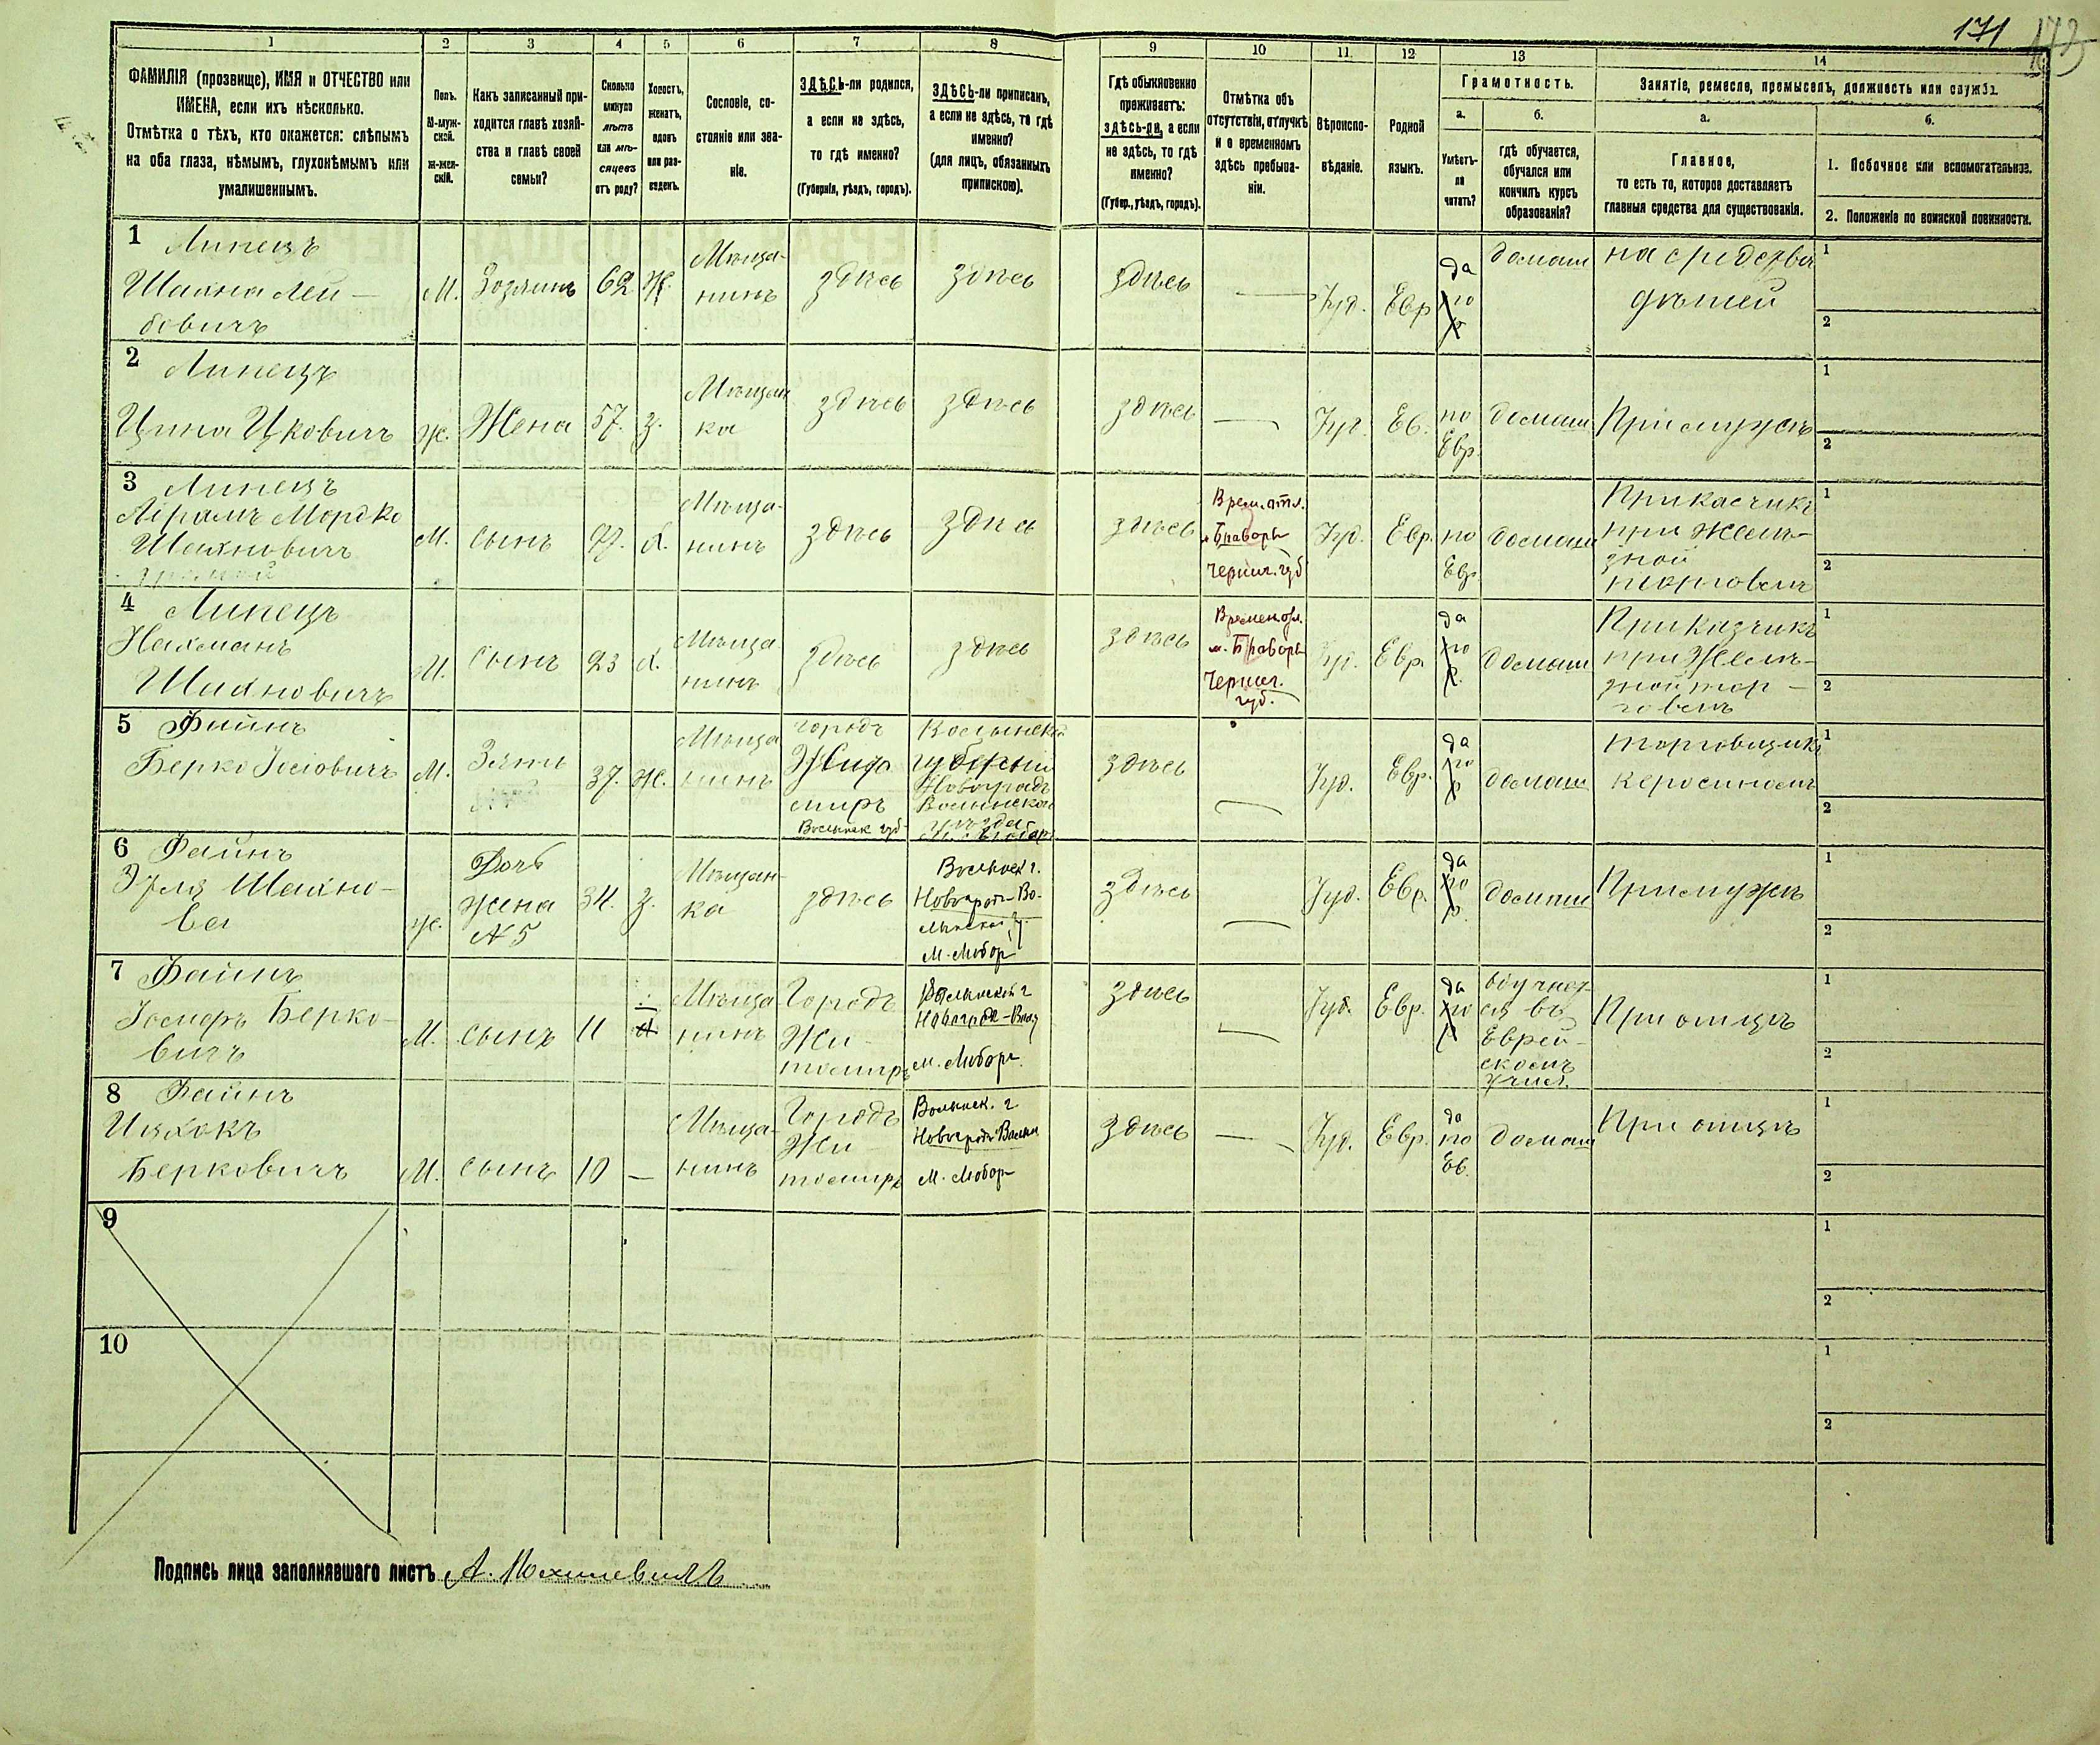 171
173
1 2 3 4 5 6 7 8 9 10 11. 12 13 14
ФАМИЛІЯ (прозвище), ИМЯ и ОТЧЕСТВО или
ИМЕНА, если ихъ нѣсколько.
Отмѣтка о тѣхъ, кто окажется: слѣпымъ
на оба глаза, нѣмымъ, глухонѣмымъ или
умалишеннымъ.
Полъ.
М-муж-
ской.
Ж-жен-
скій.
Какъ записанный при-
ходится главѣ хозяй-
ства и главѣ своей
семьи?
Сколько
минуло
лѣтъ
или мѣ-
сяцевъ
отъ роду?
Холостъ,
женатъ,
вдовъ
или раз-
веденъ.
Сословіе, со-
стояніе или зва-
ніе.
ЗДѢСЬ-ли родился,
а если не здѣсь,
то гдѣ именно?
(Губернія, уѣздъ, городъ).
ЗДѢСЬ-ли приписанъ,
а если не здѣсь, то гдѣ
именно?
(для лицъ, обязанныхъ
припискою).
Гдѣ обыкновенно
проживаетъ:
здѣсь-ли, а если
не здѣсь, то гдѣ
именно?
(Губер., уѣздъ, городъ).
Отмѣтка объ
отсутствіи, отлучкѣ
и о временномъ
здѣсь пребыва-
ніи.
Вѣроиспо-
вѣданіе.
Родной
языкъ.
Грамотность.
а.
Умѣетъ-
ли
читать?
б.
гдѣ обучается,
обучался или
кончилъ курсъ
образованія?
Занятіе, ремесло, промыселъ, должность или служба.
а.
Главное,
то есть то, которое доставляетъ
главныя средства для существованія.
б.
1. Побочное или вспомогательное.
2. Положеніе по воинской повинности.
1 Липецъ
Шахна Лей-
бовичъ
М. Хозяинъ 62 Ж.
Мѣща-
нинъ
здѣсь здѣсь здѣсь — Іуд. Евр
да
по
р
домаш
на средства
дѣтей
1
2
2 Липецъ
Ципа Ицковичъ
ж. Жена 57. З.
Мѣщан
ка
здѣсь здѣсь здѣсь — Іуд. Ев.
по
Евр.
домаш При мужѣ
1
2
3 Липецъ
Абрамъ Мордко
Шахновичъ
М. сынъ 27. Х.
Мѣща-
нинъ
здѣсь здѣсь здѣсь
Врем. отл.
м. Браворы
Черниг. губ
Іуд. Евр.
по
Евр
домаш
Прикасчикъ
при желѣ-
зной
торговлѣ
1
2
4 Липецъ
Нахманъ
Шахновичъ
М. сынъ 23 Х.
Мѣща
нинъ
здѣсь здѣсь здѣсь
Времен отл.
м. Браворы
Черниг.
губ.
Іуд. Евр.
да
по
р.
домаш
Приказчикъ
при Желѣ-
зной тор-
говлѣ
1
2
5 Файнъ
Берко Іосіовичъ
М. Зять 37. Ж.
Мѣща
нинъ
городъ
Жито
миръ
Волынск губ
Волынской
губерніи
Новоградъ
Волынскаго
уѣзда
м. Любаръ
здѣсь — Іуд. Евр.
да
по
р
домаш
торговщикъ
керосиномъ
1
2
6 Файнъ
Шахно-
ва
ж.
Дочь
жена
№ 5
34. З.
Мѣщан-
ка
здѣсь
Волынск г.
Новоградъ-Во-
лынской у.
м. Любар
здѣсь — Іуд. Евр.
да
по
р.
домаш При мужѣ
1
2
7 Файнъ
Іосифъ Берко-
вичъ
М. сынъ 11
Мѣща
нинъ
Городъ
Жи-
томиръ
Волынской г
Новоград-Волы
м. Любаръ.
здѣсь — Іуд. Евр.
да
по
р
обучает
ся въ
Еврей-
скомъ
учил.
При отцѣ
1
2
8 Файнъ
Ицхокъ
Берковичъ
М. сынъ 10 —
Мѣща-
нинъ
Городъ
Жи-
томиръ
Волынск. г.
Новоградъ Волын
м. Любар
здѣсь — Іуд. Евр.
да
по
Ев.
домаш При отцѣ
1
2
9
1
2
10
1
2
Подпись лица заполнявшаго листъ А. Мохилевичъ